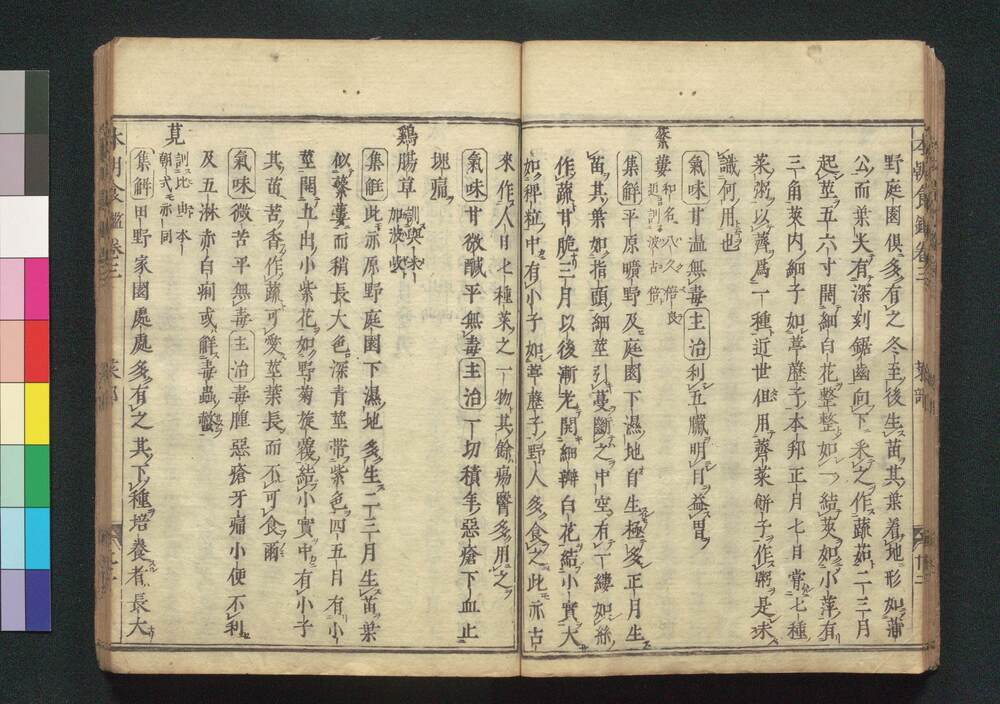 野庭園俱多有之冬至後生苗其葉着地形如蒲
公而葉尖有深刻鋸齒向下采之作蔬茹二三月
起莖五六寸開細白花整整如一結莢如小萍有
三角莢內細子如葶藶子本邦正月七日嘗七種
菜粥以薺爲一種近世但用薺菜餅子作粥是未
識何用也
氣味甘温無毒主治利五臟明目益胃
蘩蔞和名八久倍良
近訓波古倍
集解平原曠野及庭園下濕地自生極多正月生
苗其葉如指頭細莖引蔓斷之中空有一縷如絲
作蔬甘脆三月以後漸老開細瓣白花結小實大
如稗粒中有小子如葶藶子野人多食之此亦古
來作人日七種菜之一物其餘瘍醫多用之
氣味甘微鹹平無毒主治一切積年惡瘡下血止
鷄腸草
集觧此亦原野庭園下濕地多生二三月生苗葉
似蘩蔞而稍長大色深青莖帶紫色四五月有小
莖開五出小紫花如野菊旋覆結小實中有小子
其苗苦香作蔬可愛莖葉長而不可食爾
氣味微苦平無毒主治毒腫惡瘡牙痛小便不利
及五淋赤白痢或觧毒蟲螫
莧訓比由本
朝式亦同
集解甲野家園處處多有之其下種培養者長大